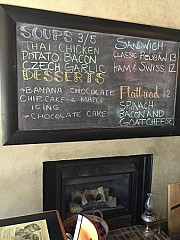 SOUPS 3/5
THAI CHICKEN
POTATO BACON
CZECH GARLIC
DESSERTS
→BANANA CHOCOLATE
CHIP CAKE & MAPLE
ICING
→CHOCOLATE CAKE
SANDWICH
CLASSIC REUBAN 13
HAM & SWISS 12
Flatbread 12
SPINACH
BACON AND
GOAT CHEESE